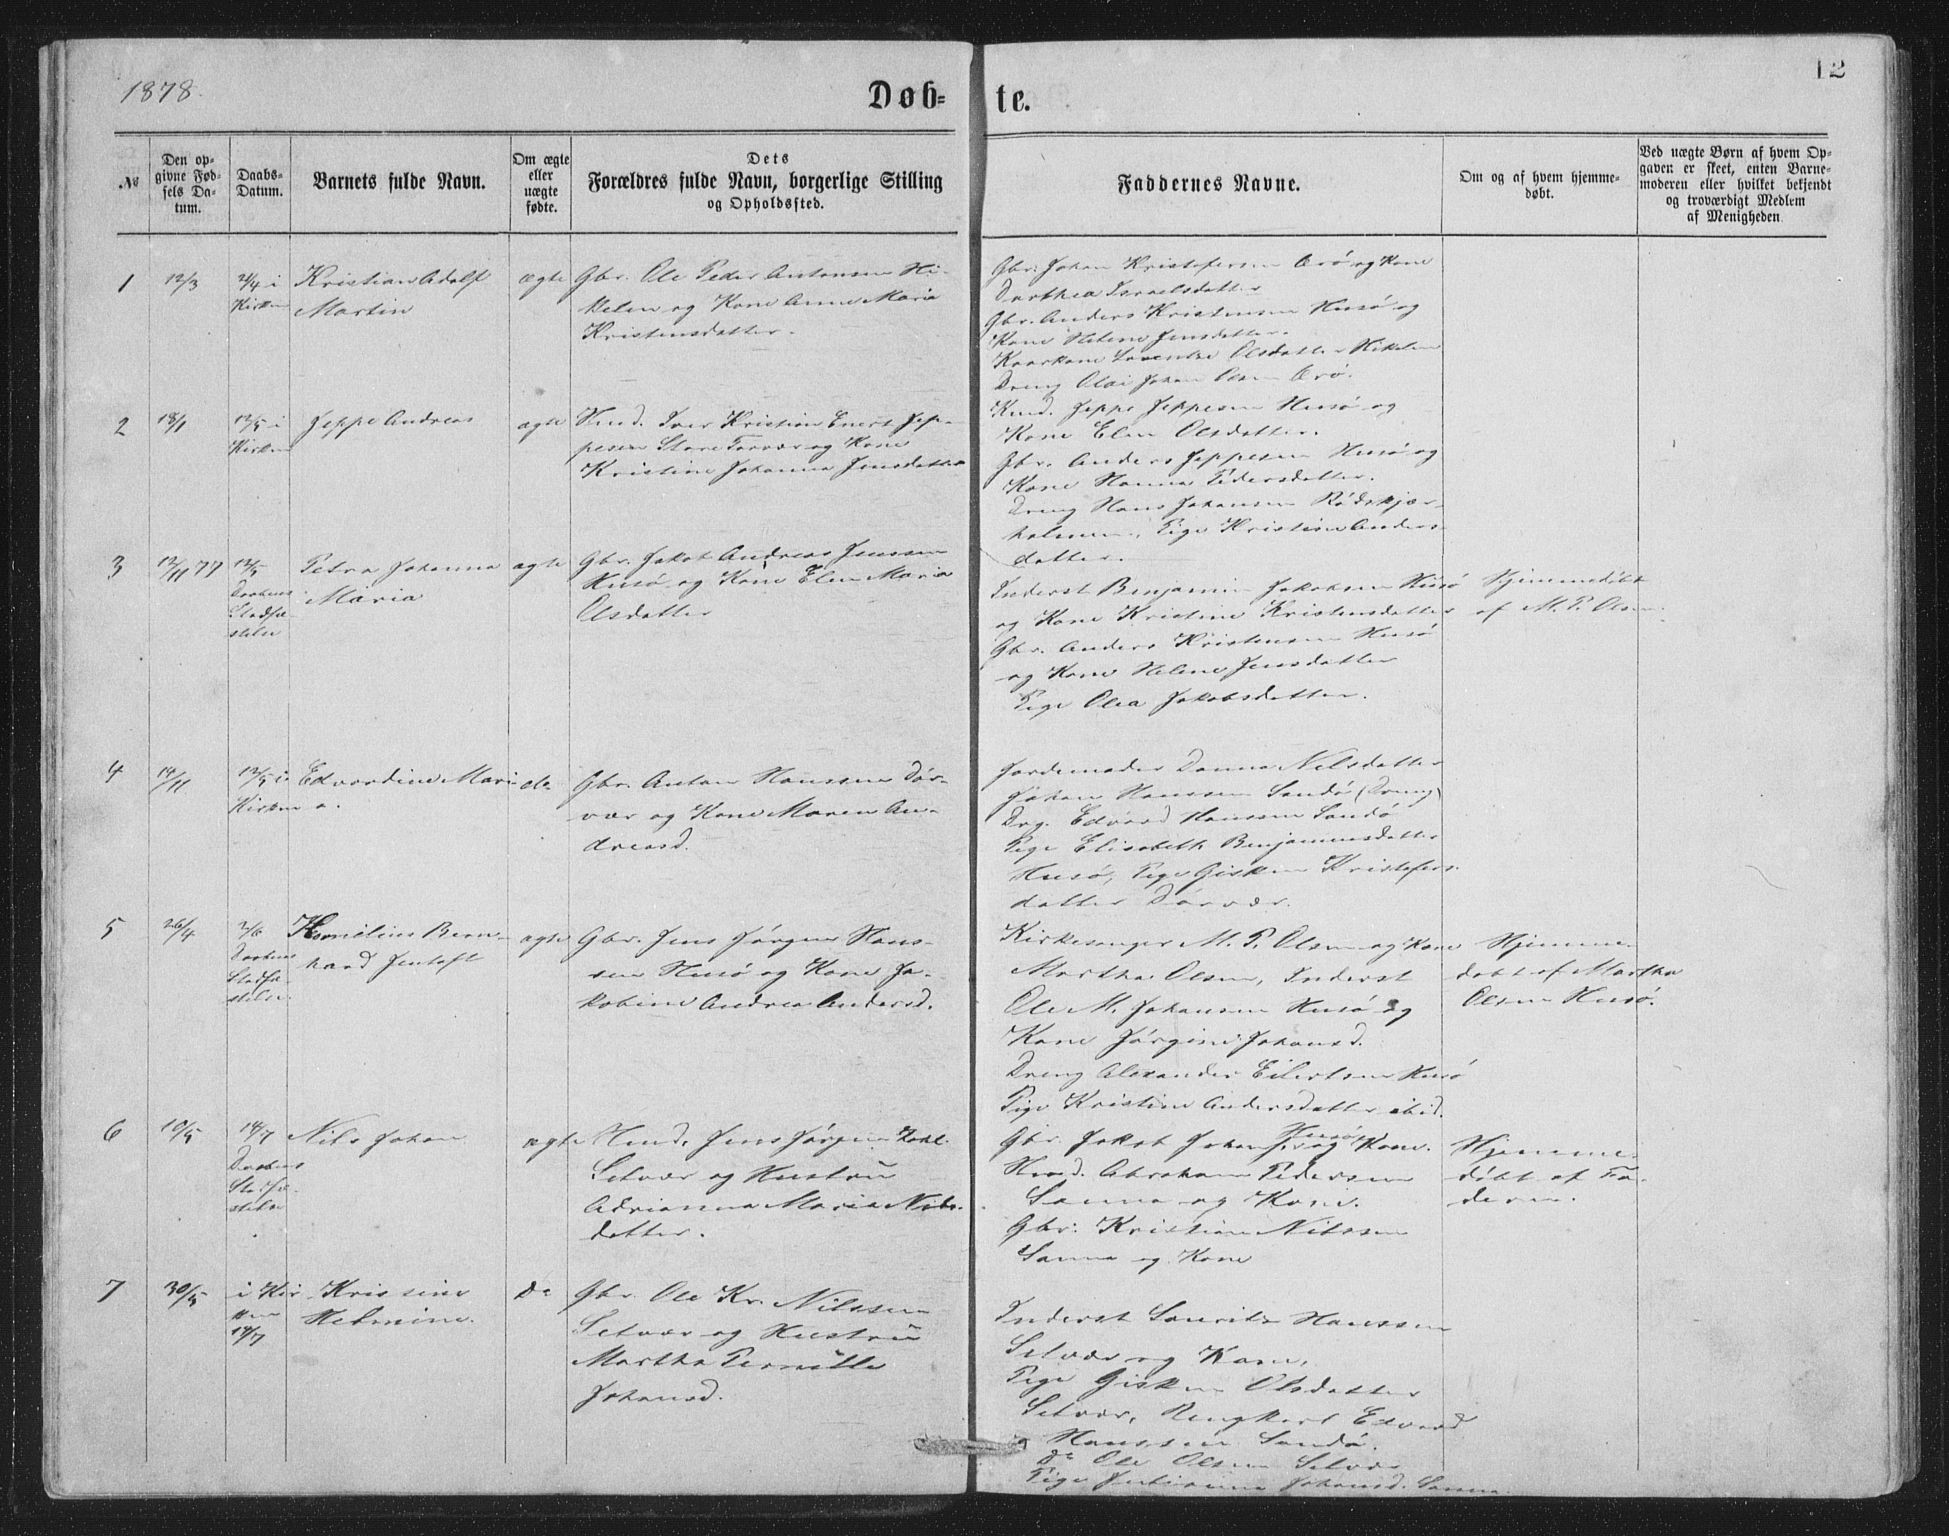 1878.
12
Døb=
te.
№
Den op=
givne Fød=
sels Da=
tum.
Daabs=
Datum.
Barnets fulde Navn.
Om ægte
eller
uægte
fødte.
Dets
Forældres fulde Navn, borgerlige Stilling
og Opholdssted.
Faddernes Navne.
Om og af hvem hjemme=
døbt.
Ved uægte Børn af hvem Op=
gaven er skeet, enten Barne=
moderen eller hvilket bekjendt
og troværdigt Medlem
af Menigheden
1
12/3
21/4 i
Kirken
Kristian Adolf
Martin
ægte
Gbr. Ole Peder Antonsen Hi-
kelen og Kone Anne Maria
Kristensdatter.
Gbr. Johan Kristofersen Erø og Kone
Dorthea Israelsdatter
Gbr. Anders Kristensen Husø og
Kone Helene Jensdatter.
Kaarkone Lorentze Olsdatter Hikelen
Dreng Olai Johan Olsen Erø.
2
18/1
12/5 i
Kirken
Jeppe Andreas
ægte
Hmd. Iver Kristian Enert Jep-
pesen Store Torvær og Kone
Kristine Johanna Jensdatter
Hmd. Jeppe Jeppesen Husø og
Kone Elen Olsdatter.
Gbr. Anders Jeppesen Husø og
Kone Hanna Pedersdatter.
Dreng Hans Johansen Rødskjær-
holmen, Pige Kristine Anders-
datter.
3
12/11 77
12/5
Daabens
Stadfæ-
stelse
Petra Johanna
Maria
ægte
Gbr. Jakob Andreas Jenssen
Husø og Kone Elen Maria
Olsdatter
Inderst Benjamin Jakobsen Husø
og Kone Kristine Kristensdatter
Gbr. Anders Kristensen Husø
og Kone Helene Jensdatter
Pige Olea Jakobsdatter.
Hjemmedøbt
af M. P. Olsen.
4
14/11
12/5 i
Kirken
Edvardine Mari-
a.
do
Gbr. Anton Hanssen Dør-
vær og Kone Maren An-
dreasd.
Jordemoder Danna Nilsdatter
Johan Hanssen Sandø (Dreng)
Drg. Edvard Hanssen Sandø
Pige Elisabeth Benjaminsdatter
Husø, Pige Gisken Kristofers-
datter Dørvær.
5
26/4
2/6
Daabens
Stadfæ-
stelse.
Kornelius Bern-
hard Jentoft
ægte
Gbr. Jens Jørgen Hans-
sen Husø og Kone Ja-
kobine Andrea Andersd.
Kirkesanger M. P. Olsen og Kone
Martha Olsen, Inderst
Ole M. Johansen Husø og
Kone Jørgine Johansd.
Dreng Alexander Eilertsen Husø
Pige Kristine Andersdatter ibid.
Hjemme-
døbt af Martha
Olsen Husø.
6
10/5
14/7
Daabens
Stadfæ-
stelse
Nils Johan
ægte
Hmd. Jens Jørgen Zahl
Selvær og Hustru
Adrianna Maria Nils-
datter.
Gbr. Jakob Johans. Husø og Kone.
Hmd. Abraham Pedersen
Sanna og Kone.
Gbr. Kristian Nilssen
Sanna og Kone
Hjemme-
døbt af Fa-
deren.
7
30/5
i Kir
ken
14/7
Kristine
Helmine.
Do
Gbr. Ole Kr. Nilssen
Selvær og Hustru
Martha Pernille
Johansd.
Inderst Lauritz Hanssen
Selvær og Kone,
Pige Gisken Olsdatter
Selvær, Ungkarl Edvard
Hanssen Sandø.
Do Ole Olsen Selvær
Pige Julianna Johansd. Sanna.